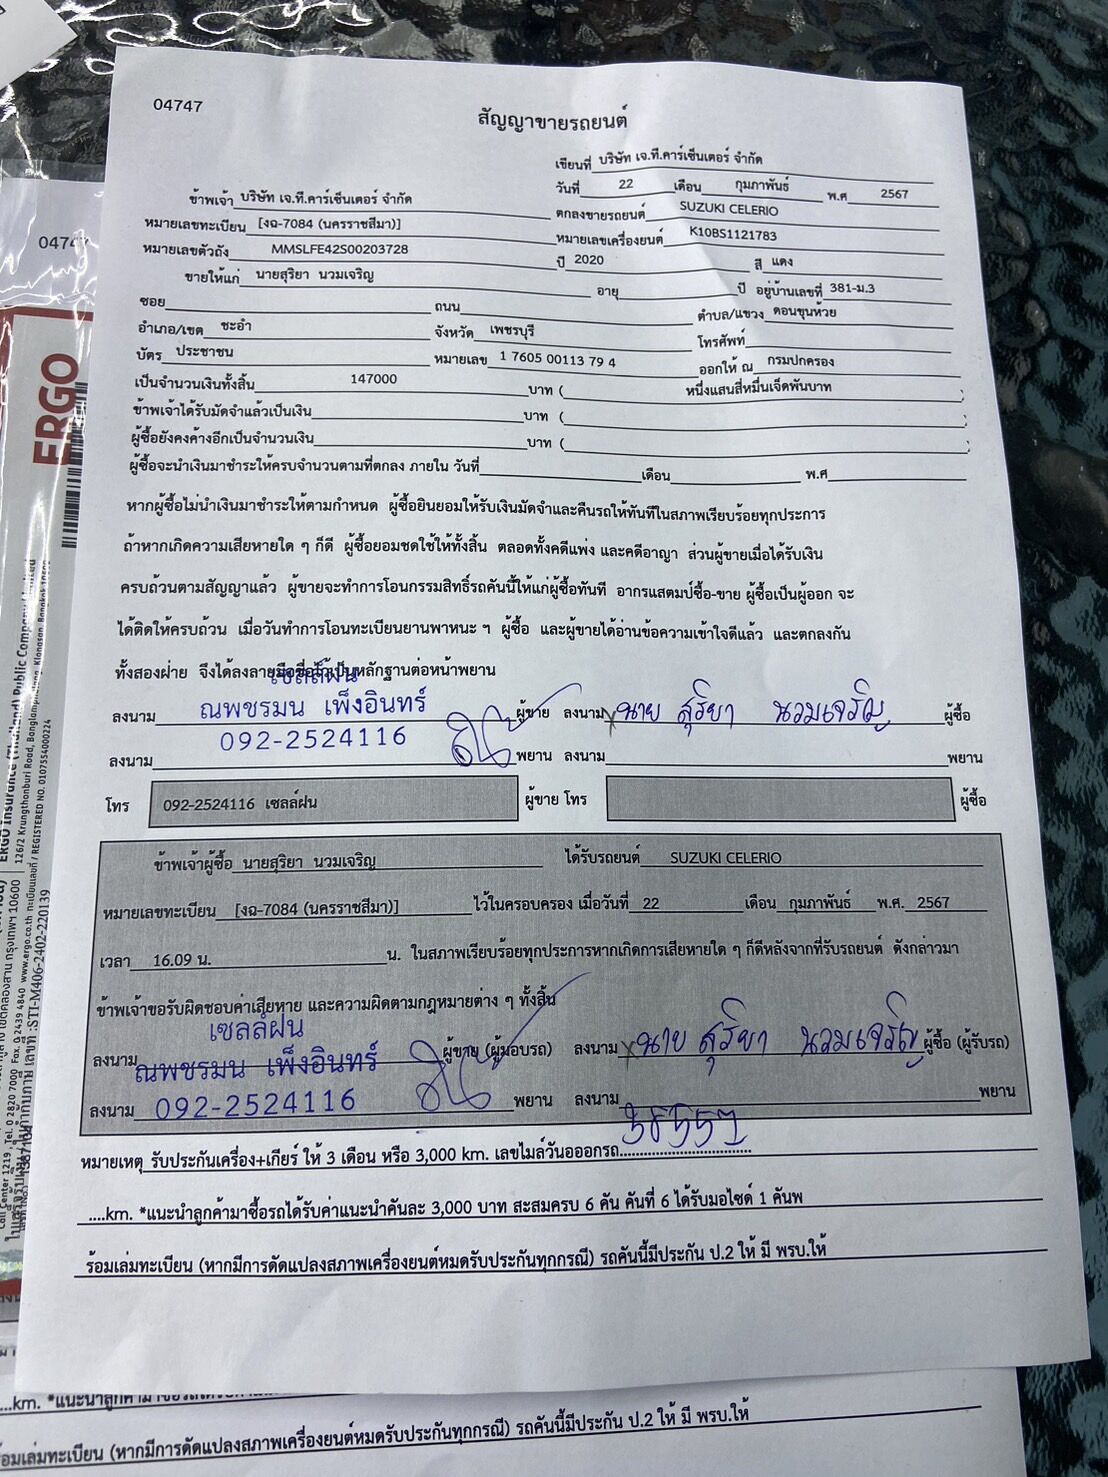 04747
สัญญาขายรถยนต์
เขียนที่ บริษัท เจ.ที.คาร์เซ็นเตอร์ จำกัด
วันที่ 22 เดือน กุมภาพันธ์ พ.ศ 2567
ข้าพเจ้า บริษัท เจ.ที.คาร์เซ็นเตอร์ จำกัด ตกลงขายรถยนต์ SUZUKI CELERIO
หมายเลขทะเบียน [งฉ-7084 (นครราชสีมา)] หมายเลขเครื่องยนต์ K10BS1121783
หมายเลขตัวถัง MMSLFE42S00203728 ปี 2020 สี แดง
ขายให้แก่ นายสุริยา นวมเจริญ อายุ ปี อยู่บ้านเลขที่ 381-ม.3
ซอย ถนน ตำบล/แขวง ดอนขุนห้วย
อำเภอ/เขต ชะอำ จังหวัด เพชรบุรี โทรศัพท์
บัตร ประชาชน หมายเลข 1 7605 00113 79 4 ออกให้ ณ กรมปกครอง
เป็นจำนวนเงินทั้งสิ้น 147000 บาท ( หนึ่งแสนสี่หมื่นเจ็ดพันบาท )
ข้าพเจ้าได้รับมัดจำแล้วเป็นเงิน บาท ( )
ผู้ซื้อยังคงค้างอีกเป็นจำนวนเงิน บาท ( )
ผู้ซื้อจะนำเงินมาชำระให้ครบจำนวนตามที่ตกลง ภายใน วันที่ เดือน พ.ศ
หากผู้ซื้อไม่นำเงินมาชำระให้ตามกำหนด ผู้ซื้อยินยอมให้รับเงินมัดจำและคืนรถให้ทันทีในสภาพเรียบร้อยทุกประการ
ถ้าหากเกิดความเสียหายใด ๆ ก็ดี ผู้ซื้อยอมชดใช้ให้ทั้งสิ้น ตลอดทั้งคดีแพ่ง และคดีอาญา ส่วนผู้ขายเมื่อได้รับเงิน
ครบถ้วนตามสัญญาแล้ว ผู้ขายจะทำการโอนกรรมสิทธิ์รถคันนี้ให้แก่ผู้ซื้อทันที อากรแสตมป์ซื้อ-ขาย ผู้ซื้อเป็นผู้ออก จะ
ได้ติดให้ครบถ้วน เมื่อวันทำการโอนทะเบียนยานพาหนะ ฯ ผู้ซื้อ และผู้ขายได้อ่านข้อความเข้าใจดีแล้ว และตกลงกัน
ทั้งสองฝ่าย จึงได้ลงลายมือชื่อไว้เป็นหลักฐานต่อหน้าพยาน
เซลล์ฝน
ลงนาม ณพชรมน เพ็งอินทร์ ผู้ขาย ลงนาม นาย สุริยา นวมเจริญ ผู้ซื้อ
092-2524116
ลงนาม พยาน ลงนาม พยาน
โทร 092-2524116 เซลล์ฝน ผู้ขาย โทร ผู้ซื้อ
ข้าพเจ้าผู้ซื้อ นายสุริยา นวมเจริญ ได้รับรถยนต์ SUZUKI CELERIO
หมายเลขทะเบียน [งฉ-7084 (นครราชสีมา)] ไว้ในครอบครอง เมื่อวันที่ 22 เดือน กุมภาพันธ์ พ.ศ. 2567
เวลา 16.09 น. น. ในสภาพเรียบร้อยทุกประการหากเกิดการเสียหายใด ๆ ก็ดีหลังจากที่รับรถยนต์ ดังกล่าวมา
ข้าพเจ้าขอรับผิดชอบค่าเสียหาย และความผิดตามกฎหมายต่าง ๆ ทั้งสิ้น
เซลล์ฝน
ลงนาม ณพชรมน เพ็งอินทร์ ผู้ขาย (ผู้มอบรถ) ลงนาม นาย สุริยา นวมเจริญ ผู้ซื้อ (ผู้รับรถ)
ลงนาม 092-2524116 พยาน ลงนาม พยาน
หมายเหตุ รับประกันเครื่อง+เกียร์ ให้ 3 เดือน หรือ 3,000 km. เลขไมล์วันอออกรถ
....km. *แนะนำลูกค้ามาซื้อรถได้รับค่าแนะนำคันละ 3,000 บาท สะสมครบ 6 คัน คันที่ 6 ได้รับมอไซด์ 1 คันพ
ร้อมเล่มทะเบียน (หากมีการดัดแปลงสภาพเครื่องยนต์หมดรับประกันทุกกรณี) รถคันนี้มีประกัน ป.2 ให้ มี พรบ.ให้
ERGO
126/2 Krungthonburi Road, Banglamphulang, Klongsan, Bangkok 10600
REGISTERED NO. 0107554000224
STI-M406-2402-220139
....km. *แนะนำลูกค้ามาซื้อรถได้รับ
ร้อมเล่มทะเบียน (หากมีการดัดแปลงสภาพเครื่องยนต์หมดรับประกันทุกกรณี) รถคันนี้มีประกัน ป.2 ให้ มี พรบ.ให้